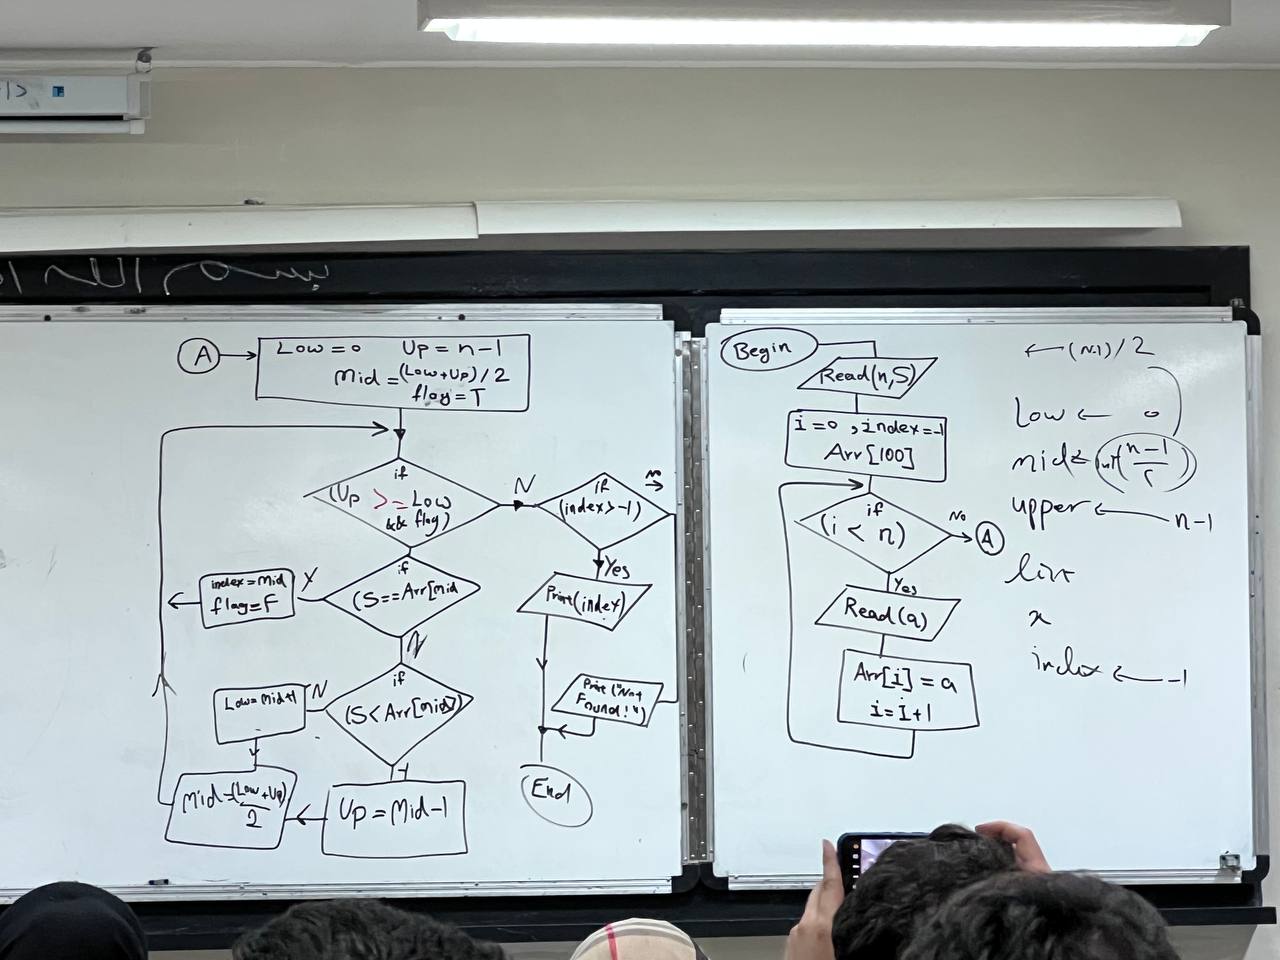 بسم الله ا
A
Low = 0 Up = n-1
Mid = (Low+Up)/2
flag = T
if
(Up >= Low
&& flag)
N
if
(index > -1)
no
Yes
Print(index)
Print("Not
Found!")
End
if
(S==Arr[mid
Y
index = Mid
flag = F
N
if
(S < Arr[mid])
N
Low = Mid+1
Y
Up = Mid-1
Mid = (Low+Up)
2
Begin
Read(n,S)
i=0, index=-1
Arr[100]
if
(i < n)
No
A
Yes
Read(a)
Arr[i] = a
i = i+1
← (n-1)/2
Low ← 0
mid ← int(n-1
۲)
upper ← n-1
list
x
index ← -1